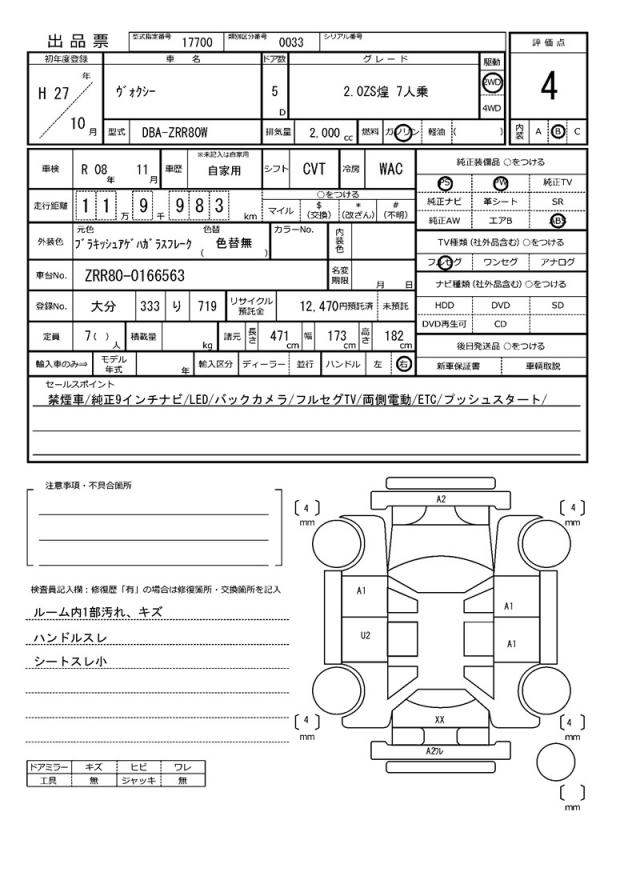 出品票 型式指定番号 17700 類別区分番号 0033 シリアル番号
評価点
4
初年度登録 車名 ドア数 グレード 駆動
H 27 年 10 月 ヴォクシー 5 D 2.0ZS煌 7人乗 2WD 4WD
型式 DBA-ZRR80W 排気量 2,000 cc 燃料 ガソリン 軽油 ( ) 内装 A B C
車検 R 08 年 11 月 車歴 ※未記入は自家用 自家用 シフト CVT 冷房 WAC
純正装備品 ○をつける
PS PW 純正TV
純正ナビ 革シート SR
純正AW エアB ABS
走行距離 1 1 万 9 千 9 8 3 km
○をつける
マイル $(交換) *(改ざん) #(不明)
TV種類(社外品含む)○をつける
フルセグ ワンセグ アナログ
外装色 元色 ブラキッシュアゲハガラスフレーク 色替 ( 色替無 ) カラーNo. 内装色
車台No. ZRR80-0166563 名変期限 月 日
ナビ種類(社外品含む)○をつける
HDD DVD SD
DVD再生可 CD
登録No. 大分 333 り 719 リサイクル預託金 12,470円預託済 未預託
定員 7( ) 人 積載量 kg 諸元 長さ 471 cm 幅 173 cm 高さ 182 cm
後日発送品 ○をつける
新車保証書 車輌取説
輸入車のみ⇒ モデル年式 年 輸入区分 ディーラー 並行 ハンドル 左 右
セールスポイント
禁煙車/純正9インチナビ/LED/バックカメラ/フルセグTV/両側電動/ETC/プッシュスタート/
注意事項・不具合箇所
検査員記入欄:修復歴「有」の場合は修復箇所・交換箇所を記入
ルーム内1部汚れ、キズ
ハンドルスレ
シートスレ小
ドアミラー キズ ヒビ ワレ
工具 無 ジャッキ 無
A2
[ 4 ] mm
[ 4 ] mm
A1
A1
U2
A1
XX
[ 4 ] mm
[ 4 ] mm
A2フレ
[ ] mm